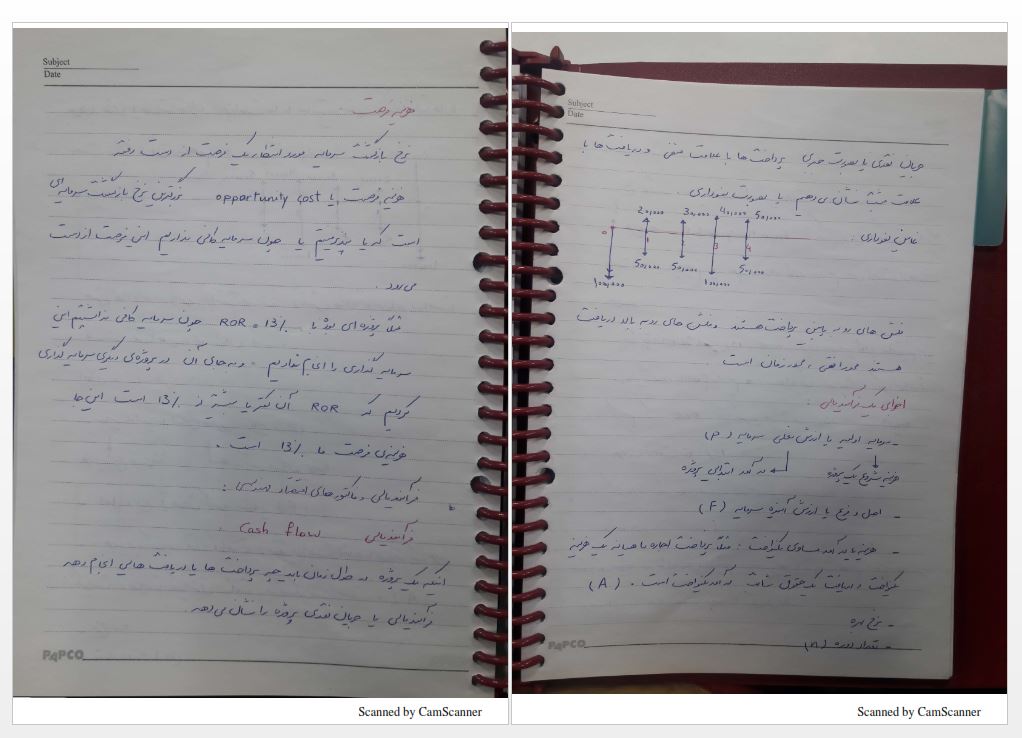 Subject
Date
هزینه فرصت
نرخ بازگشت سرمایه مورد انتظار یک فرصت از دست رفته
هزینه فرصت یا opportunity cost بزرگترین نرخ بازگشت سرمایه ای
است که یا نپذیرفتیم یا چون سرمایه کافی نداریم این فرصت از دست
می رود.
مثلا پروژه ای بوده با ROR = 13٪ چون سرمایه کافی نداشتیم این
سرمایه گذاری را انجام ندادیم. و به جای آن در پروژه ی دیگری سرمایه گذاری
کردیم که ROR آن کمتر یا بیشتر از 13٪ است این جا
هزینه ی فرصت ما 13٪ است.
فرآیند مالی و فاکتورهای اقتصاد مهندسی :
فرآیند مالی Cash flow :
اینکه یک پروژه در طول زمان باید چه پرداخت ها یا دریافت هایی انجام دهد
فرآیند مالی یا جریان نقدی پروژه را نشان می دهد.
PAPCO
Scanned by CamScanner
Subject
Date
جریان نقدی یا بصورت جبری پرداخت ها با علامت منفی و دریافت ها با
علامت مثبت نشان می دهیم یا بصورت نموداری.
نمایش نموداری :
20,000 30,000 40,000 50,000
0 1 2 3 4
100,000 50,000 50,000 100,000 50,000
فلش های رو به پایین پرداخت هستند و فلش های رو به بالا دریافت
هستند محور افقی، محور زمان است
اجزای یک فرآیند مالی :
- سرمایه اولیه یا ارزش فعلی سرمایه (P)
هزینه شروع یک پروژه درآمد ابتدای پروژه
- اصل و فرع یا ارزش آینده سرمایه (F)
- هزینه یا درآمد مساوی یکنواخت : مثلا پرداخت اجاره ماهیانه یک هزینه
یکنواخت و دریافت یک حقوق ثابت درآمد یکنواخت است. (A)
- نرخ بهره
- تعداد دوره (n)
PAPCO
Scanned by CamScanner